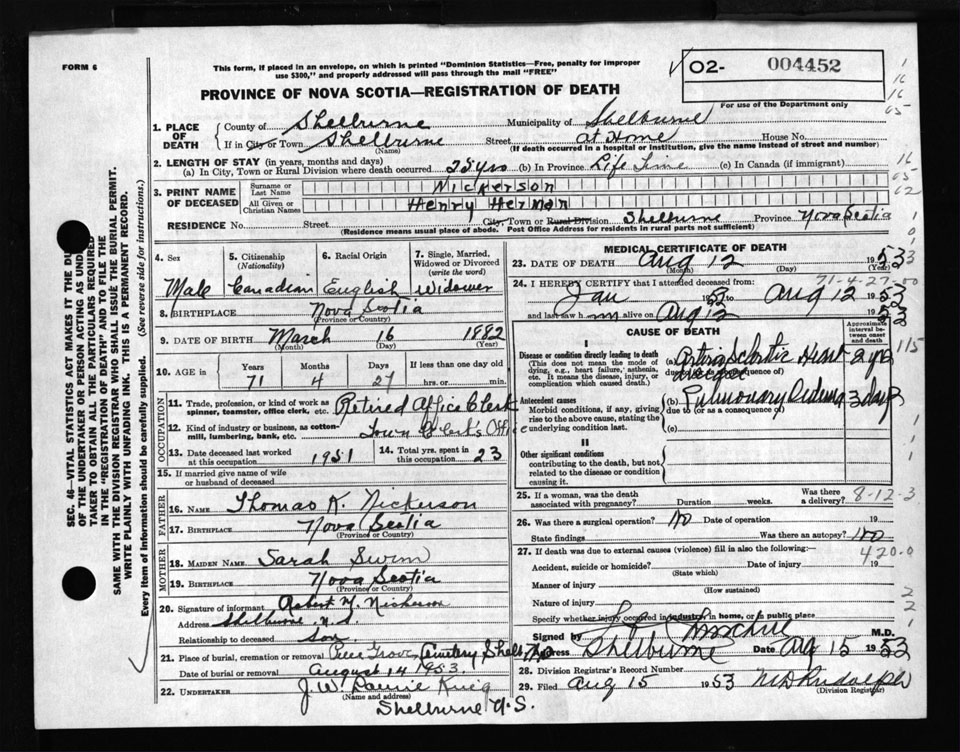 FORM 6
This form, if placed in an envelope, on which is printed "Dominion Statistics—Free, penalty for improper
use $300," and properly addressed will pass through the mail "FREE"
PROVINCE OF NOVA SCOTIA—REGISTRATION OF DEATH
O2- 004452
For use of the Department only
1. PLACE OF DEATH
County of Shelburne Municipality of Shelburne
If in City or Town Shelburne Street at Home House No.
(Name) (If death occurred in a hospital or institution, give the name instead of street and number)
2. LENGTH OF STAY (in years, months and days)
(a) In City, Town or Rural Division where death occurred 28 yrs (b) In Province Life Time (c) In Canada (if immigrant)
3. PRINT NAME OF DECEASED
Surname or Last Name Nickerson
All Given or Christian Names Henry Herman
RESIDENCE No. Street City, Town or Rural Division Shelburne Province Nova Scotia
(Residence means usual place of abode. Post Office Address for residents in rural parts not sufficient)
4. Sex Male
5. Citizenship (Nationality) Canadian
6. Racial Origin English
7. Single, Married, Widowed or Divorced (write the word) Widower
8. BIRTHPLACE Nova Scotia
(Province or Country)
9. DATE OF BIRTH March 16 1882
(Month) (Day) (Year)
10. AGE in Years Months Days If less than one day old
71 4 27 hrs. or min.
OCCUPATION
11. Trade, profession or kind of work as
spinner, teamster, office clerk, etc. Retired Office Clerk
12. Kind of industry or business, as cotton-
mill, lumbering, bank, etc. Town Clerk's Office
13. Date deceased last worked at this occupation 1951
14. Total yrs. spent in this occupation 23
15. If married give name of wife
or husband of deceased
FATHER
16. NAME Thomas K. Nickerson
17. BIRTHPLACE Nova Scotia
(Province or Country)
MOTHER
18. MAIDEN NAME Sarah Swim
19. BIRTHPLACE Nova Scotia
(Province or Country)
20. Signature of informant Robert Nickerson
Address Shelburne N.S.
Relationship to deceased Son
21. Place of burial, cremation or removal Pine Grove Cemetery
Date of burial or removal August 14 1953
22. UNDERTAKER J. W.
(Name and address)
Shelburne N.S.
MEDICAL CERTIFICATE OF DEATH
23. DATE OF DEATH Aug 12 1953
(Month) (Day) (Year)
24. I HEREBY CERTIFY that I attended deceased from:
71-4-27-00
Jan to Aug 12 1953
and last saw h m alive on Aug 12 1953
CAUSE OF DEATH
Approximate interval between onset and death
I
Disease or condition directly leading to death
(This does not mean the mode of
dying, e.g., heart failure, asthenia,
etc. It means the disease, injury, or
complication which caused death.)
(a) Arterio Sclerotic Heart 2 yrs
due to (or as a consequence of)
Antecedent causes
Morbid conditions, if any, giving
rise to the above cause, stating the
underlying condition last.
(b) Pulmonary Oedema 3 days
due to (or as a consequence of)
(c)
II
Other significant conditions
contributing to the death, but not
related to the disease or condition
causing it.
25. If a woman, was the death
associated with pregnancy? Duration weeks. Was there a delivery?
8-12-3
26. Was there a surgical operation? No Date of operation 19
State findings Was there an autopsy? No
27. If death was due to external causes (violence) fill in also the following:—
420.0
Accident, suicide or homicide? Date of injury 19
(State which)
Manner of injury
(How sustained)
Nature of injury
Specify whether injury occurred in industry, in home, or in public place
Signed by M.D.
Address Shelburne Date Aug 15 1953
28. Division Registrar's Record Number
29. Filed Aug 15 1953 Rudolph
(Division Registrar)
SEC. 46—VITAL STATISTICS ACT MAKES IT THE DU
OF THE UNDERTAKER OR PERSON ACTING AS UNDER
TAKER TO OBTAIN ALL THE PARTICULARS REQUIRED
IN THE "REGISTRATION OF DEATH" AND TO FILE THE
SAME WITH THE DIVISION REGISTRAR WHO SHALL ISSUE THE BURIAL PERMIT.
WRITE PLAINLY WITH UNFADING INK. THIS IS A PERMANENT RECORD.
Every item of information should be carefully supplied. (See reverse side for instructions.)